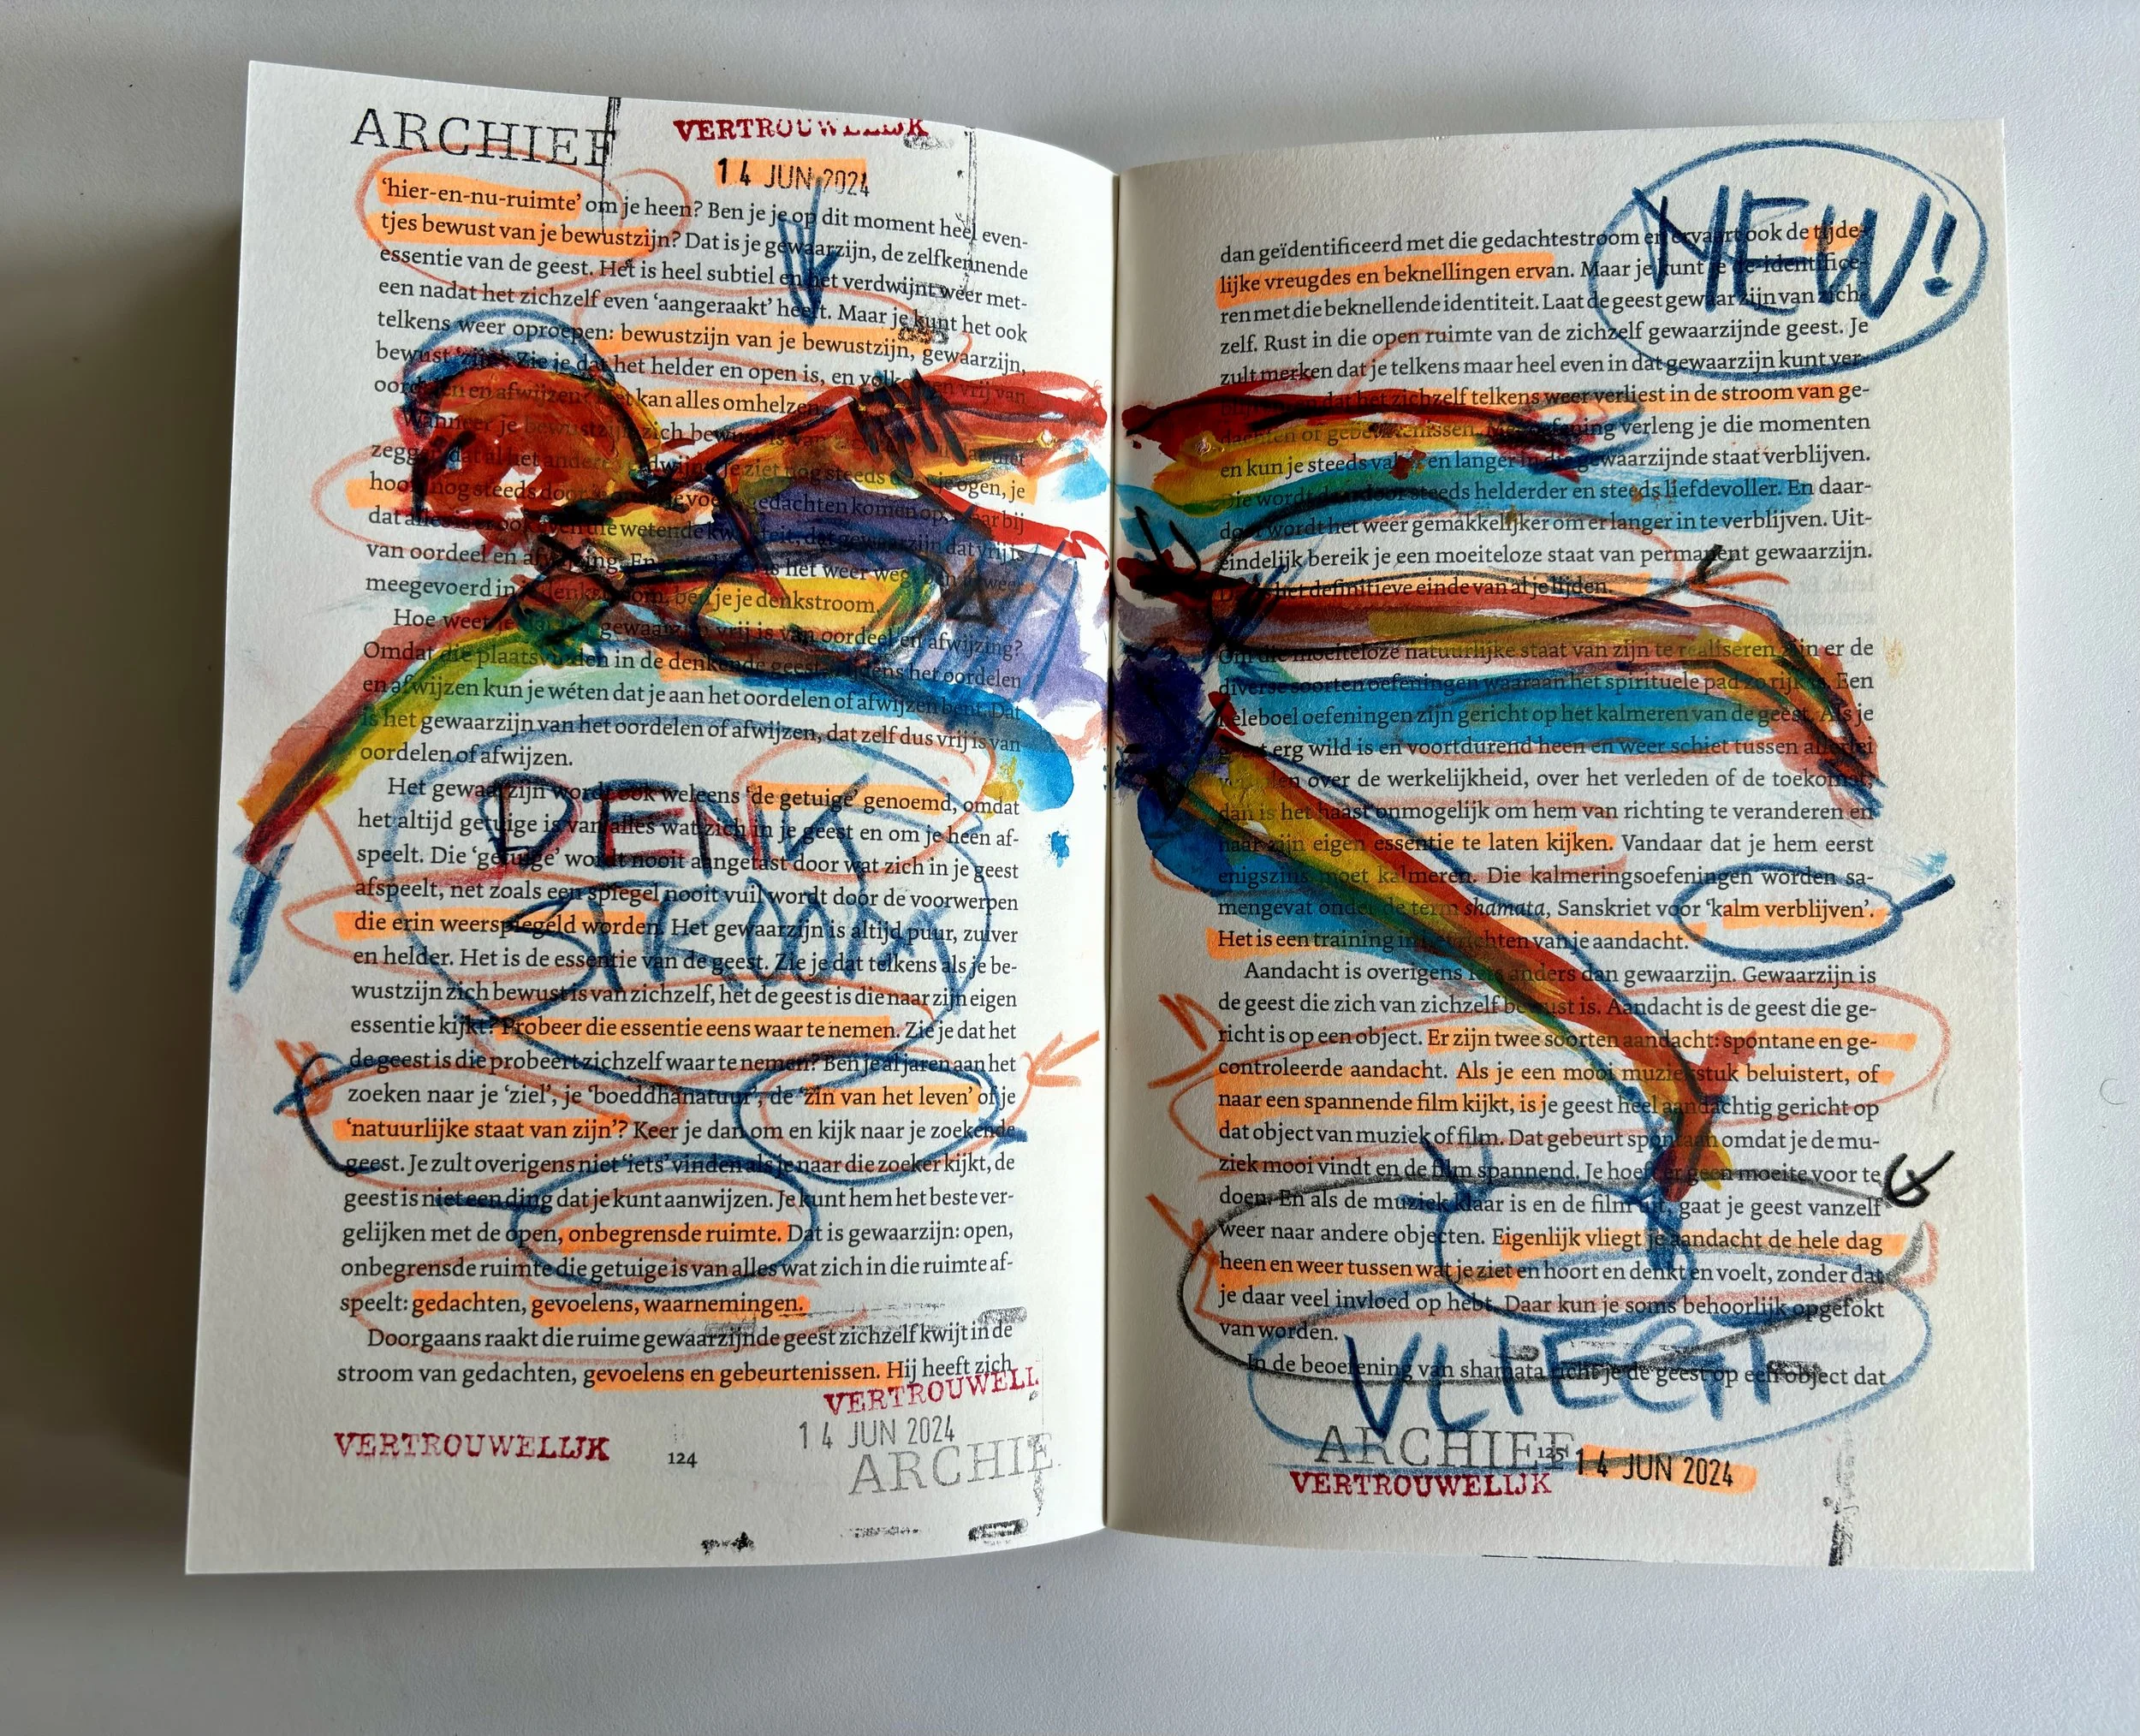 ARCHIEF
VERTROUWELIJK
14 JUN 2024
'hier-en-nu-ruimte' om je heen? Ben je je op dit moment heel even-
tjes bewust van je bewustzijn? Dat is je gewaarzijn, de zelfkennende
essentie van de geest. Het is heel subtiel en het verdwijnt weer met-
een nadat het zichzelf even 'aangeraakt' heeft. Maar je kunt het ook
telkens weer oproepen: bewustzijn van je bewustzijn, gewaarzijn,
bewust 'zijn'. Zie je dat het helder en open is, en volkomen vrij van
oordelen en afwijzen? Het kan alles omhelzen.
Wanneer je bewustzijn zich bewust is van
zeggen dat al het andere verdwijnt. Je ziet nog steeds door je ogen, je
hoort nog steeds door je gedachten komen op, maar bij
dat alles is er ook even die wetende kwaliteit, dat gewaarzijn dat vrij is
van oordeel en afwijzing. En is het weer weg, ben je weer
meegevoerd in je denkstroom, ben je je denkstroom.
Hoe weet je dat het gewaarzijn vrij is van oordeel en afwijzing?
Omdat die plaatsvinden in de denkende geest. Tijdens het oordelen
en afwijzen kun je wéten dat je aan het oordelen of afwijzen bent. Dat
is het gewaarzijn van het oordelen of afwijzen, dat zelf dus vrij is van
oordelen of afwijzen.
Het gewaarzijn wordt ook weleens 'de getuige' genoemd, omdat
het altijd getuige is van alles wat zich in je geest en om je heen af-
speelt. Die 'getuige' wordt nooit aangetast door wat zich in je geest
afspeelt, net zoals een spiegel nooit vuil wordt door de voorwerpen
die erin weerspiegeld worden. Het gewaarzijn is altijd puur, zuiver
en helder. Het is de essentie van de geest. Zie je dat telkens als je be-
wustzijn zich bewust is van zichzelf, het de geest is die naar zijn eigen
essentie kijkt? Probeer die essentie eens waar te nemen. Zie je dat het
de geest is die probeert zichzelf waar te nemen? Ben je al jaren aan het
zoeken naar je 'ziel', je 'boeddhanatuur', de 'zin van het leven' of je
'natuurlijke staat van zijn'? Keer je dan om en kijk naar je zoekende
geest. Je zult overigens niet 'iets' vinden als je naar die zoeker kijkt, de
geest is niet een ding dat je kunt aanwijzen. Je kunt hem het beste ver-
gelijken met de open, onbegrensde ruimte. Dat is gewaarzijn: open,
onbegrensde ruimte die getuige is van alles wat zich in die ruimte af-
speelt: gedachten, gevoelens, waarnemingen.
Doorgaans raakt die ruime gewaarzijnde geest zichzelf kwijt in de
stroom van gedachten, gevoelens en gebeurtenissen. Hij heeft zich
DENK
STROOM
VERTROUWELI
14 JUN 2024
ARCHIE
VERTROUWELIJK
124
NEW!
dan geïdentificeerd met die gedachtestroom en ervaart ook de tijde-
lijke vreugdes en beknellingen ervan. Maar je kunt je de-identifice-
ren met die beknellende identiteit. Laat de geest gewaarzijn van zich-
zelf. Rust in die open ruimte van de zichzelf gewaarzijnde geest. Je
zult merken dat je telkens maar heel even in dat gewaarzijn kunt ver-
blijven, omdat het zichzelf telkens weer verliest in de stroom van ge-
dachten of gebeurtenissen. Met oefening verleng je die momenten
en kun je steeds vaker en langer in die gewaarzijnde staat verblijven.
Die wordt daardoor steeds helderder en steeds liefdevoller. En daar-
door wordt het weer gemakkelijker om er langer in te verblijven. Uit-
eindelijk bereik je een moeiteloze staat van permanent gewaarzijn.
het definitieve einde van al je lijden.
Om die moeiteloze natuurlijke staat van zijn te realiseren zijn er de
diverse soorten oefeningen waaraan het spirituele pad zo rijk is. Een
heleboel oefeningen zijn gericht op het kalmeren van de geest. Als je
geest erg wild is en voortdurend heen en weer schiet tussen allerlei
over de werkelijkheid, over het verleden of de toekomst,
dan is het haast onmogelijk om hem van richting te veranderen en
naar zijn eigen essentie te laten kijken. Vandaar dat je hem eerst
enigszins moet kalmeren. Die kalmeringsoefeningen worden sa-
mengevat onder de term shamata, Sanskriet voor 'kalm verblijven'.
Het is een training in het richten van je aandacht.
Aandacht is overigens iets anders dan gewaarzijn. Gewaarzijn is
de geest die zich van zichzelf bewust is. Aandacht is de geest die ge-
richt is op een object. Er zijn twee soorten aandacht: spontane en ge-
controleerde aandacht. Als je een mooi muziekstuk beluistert, of
naar een spannende film kijkt, is je geest heel aandachtig gericht op
dat object van muziek of film. Dat gebeurt spontaan omdat je de mu-
ziek mooi vindt en de film spannend. Je hoeft er geen moeite voor te
doen. En als de muziek klaar is en de film uit, gaat je geest vanzelf
weer naar andere objecten. Eigenlijk vliegt je aandacht de hele dag
heen en weer tussen wat je ziet en hoort en denkt en voelt, zonder dat
je daar veel invloed op hebt. Daar kun je soms behoorlijk opgefokt
van worden.
In de beoefening van shamata richt je de geest op een object dat
VLIEGT
ARCHIEF
125
14 JUN 2024
VERTROUWELIJK